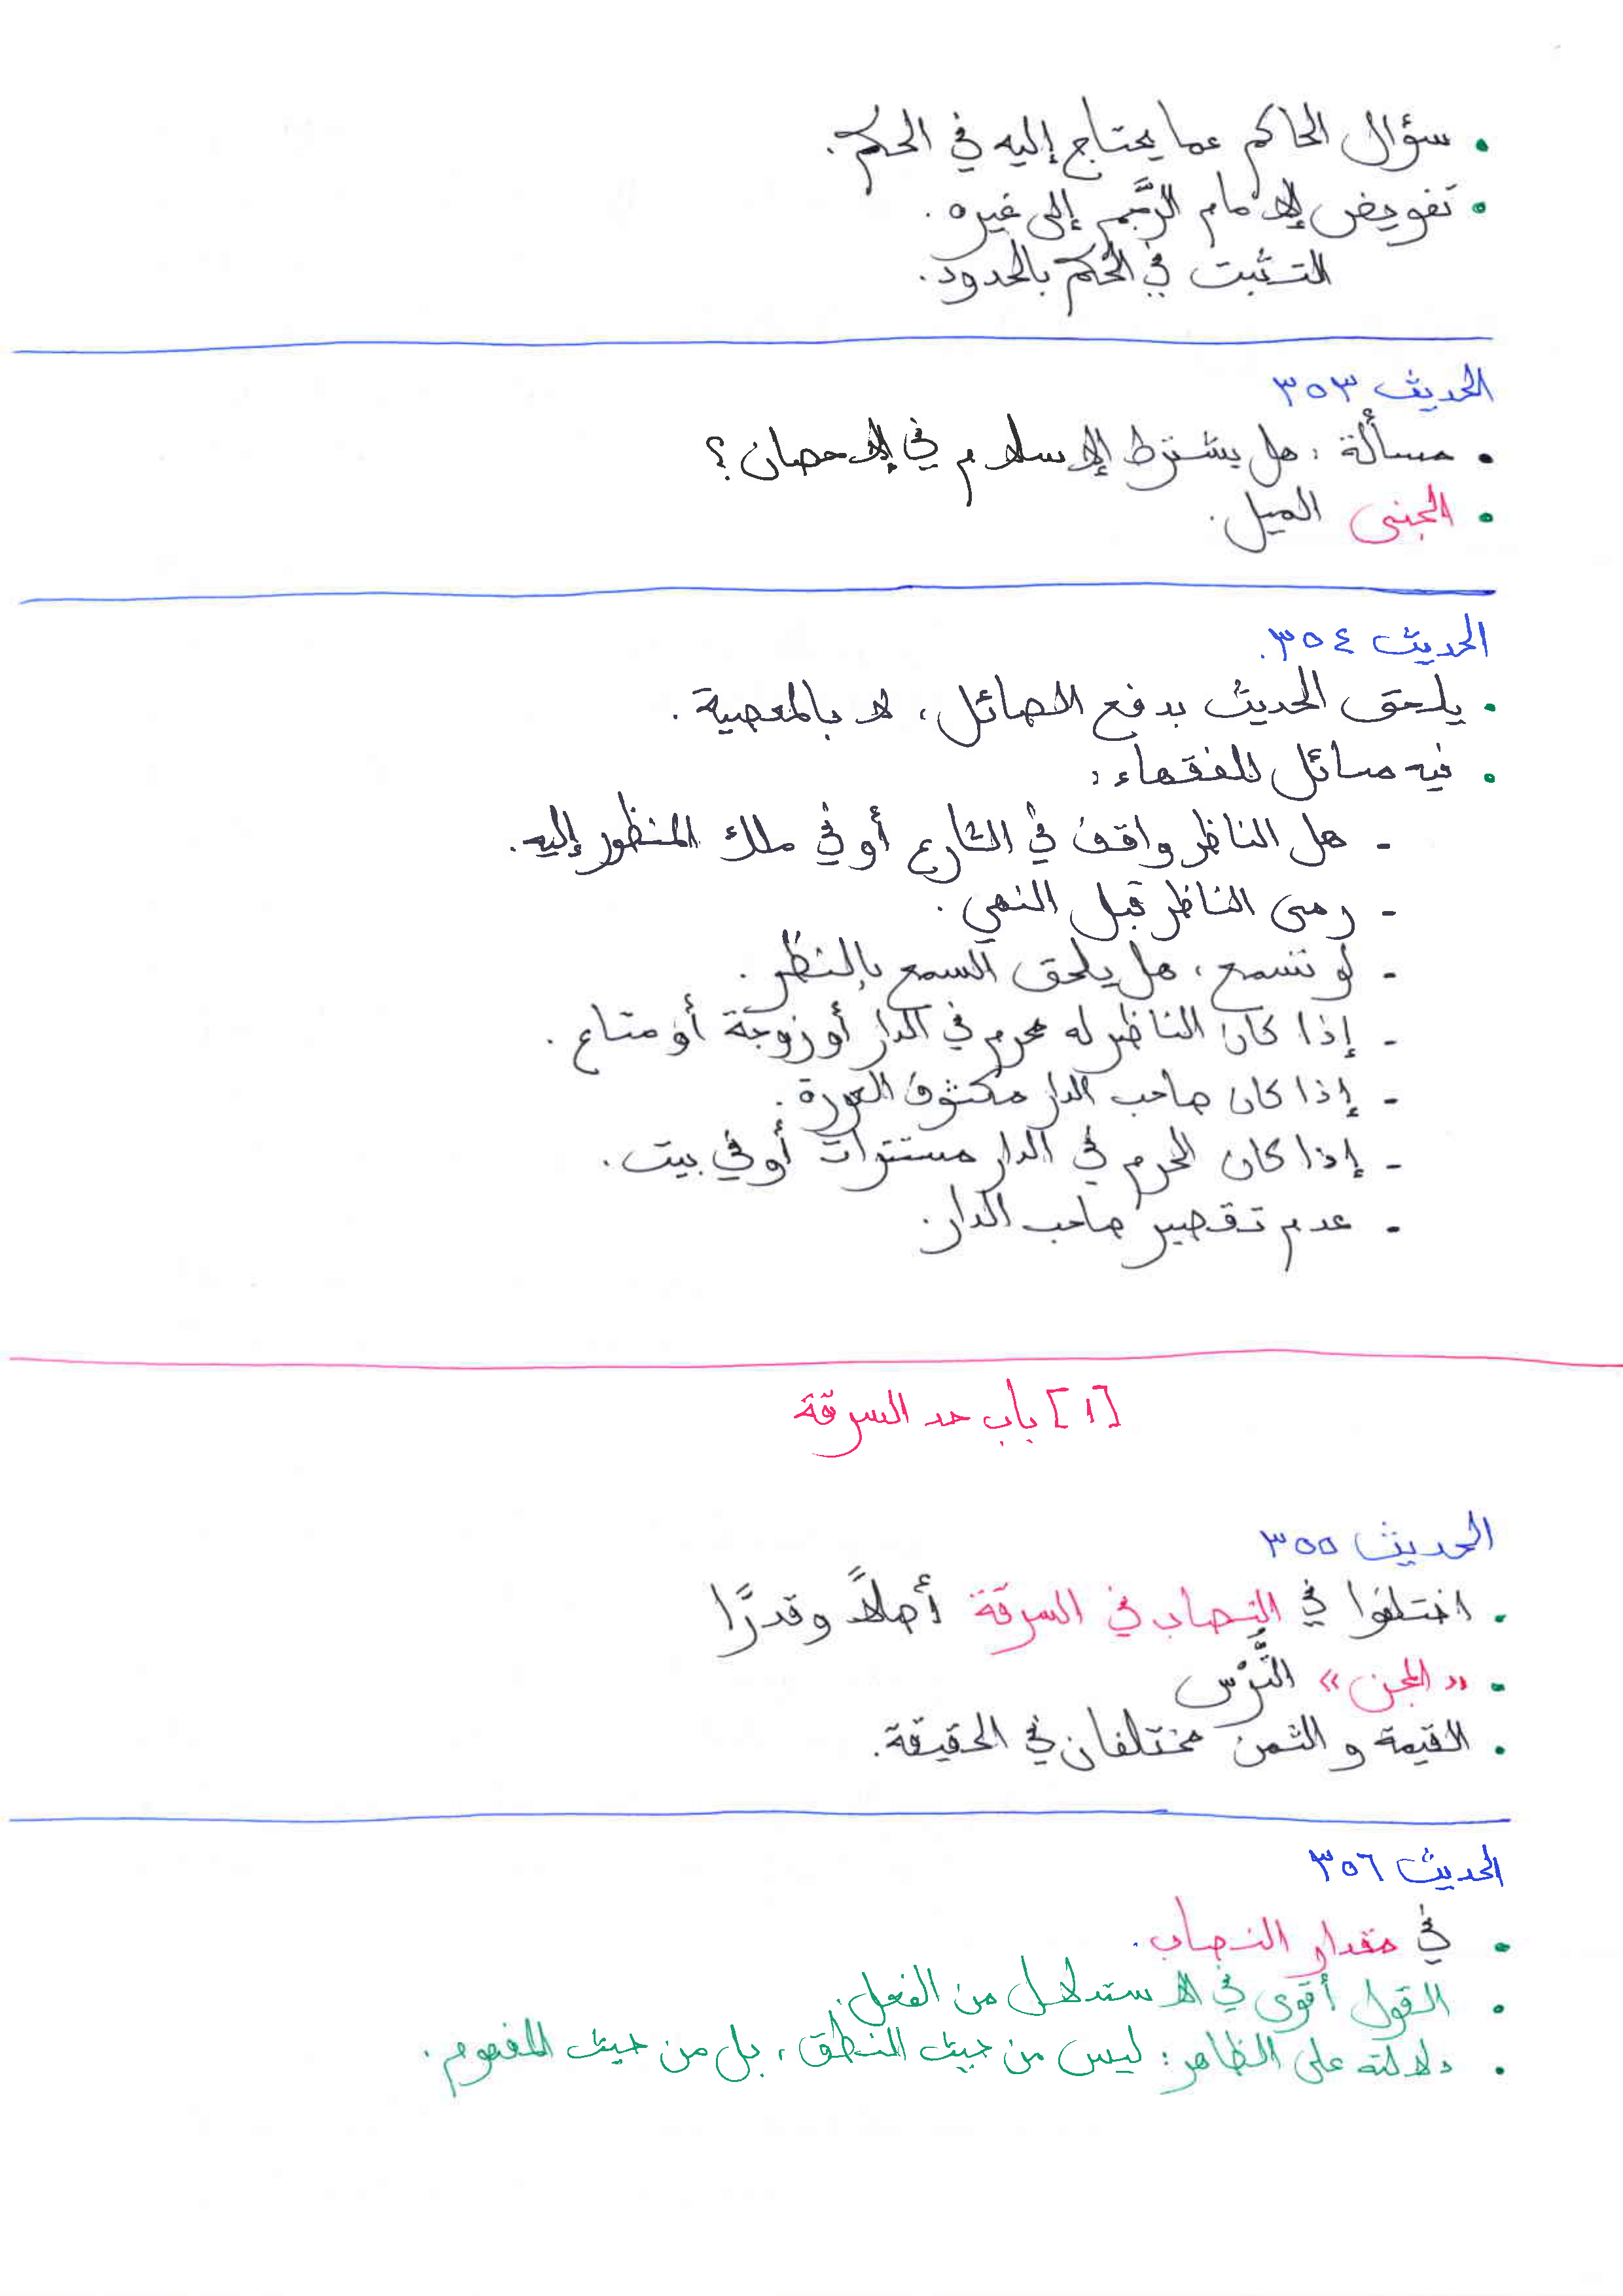 • سؤال الحاكم عما يحتاج إليه في الحكم.
• تفويض الإمام الرَّجم إلى غيره.
التثبت في الحُكم بالحدود.
الحديث ٣٥٣
• مسألة: هل يشترط الإسلام في الإحصان؟
• الجنى الميل.
الحديث ٣٥٤.
• يلحق الحديث بدفع الصائل، لا بالمعصية.
• فيه مسائل للفقهاء:
- هل الناظر واقف في الشارع أو في ملك المنظور إليه.
- رمى الناظر قبل النهي.
- لو تسمع، هل يلحق السمع بالنظر.
- إذا كان الناظر له محرم في الدار أو زوجة أو متاع.
- إذا كان صاحب الدار مكشوف العورة.
- إذا كان المحرم في الدار مستترات أو في بيت.
- عدم تقصير صاحب الدار.
[١] باب حد السرقة
الحديث ٣٥٥
• اختلفوا في النِّصاب في السرقة أصلاً وقدرًا
• «المجن» التُّرْس
• القيمة والثمن مختلفان في الحقيقة.
الحديث ٣٥٦
• في مقدار النصاب.
• القول أقوى في الاستدلال من الفعل.
• دلالته على الظاهر: ليس من حيث النطق، بل من حيث المفهوم.